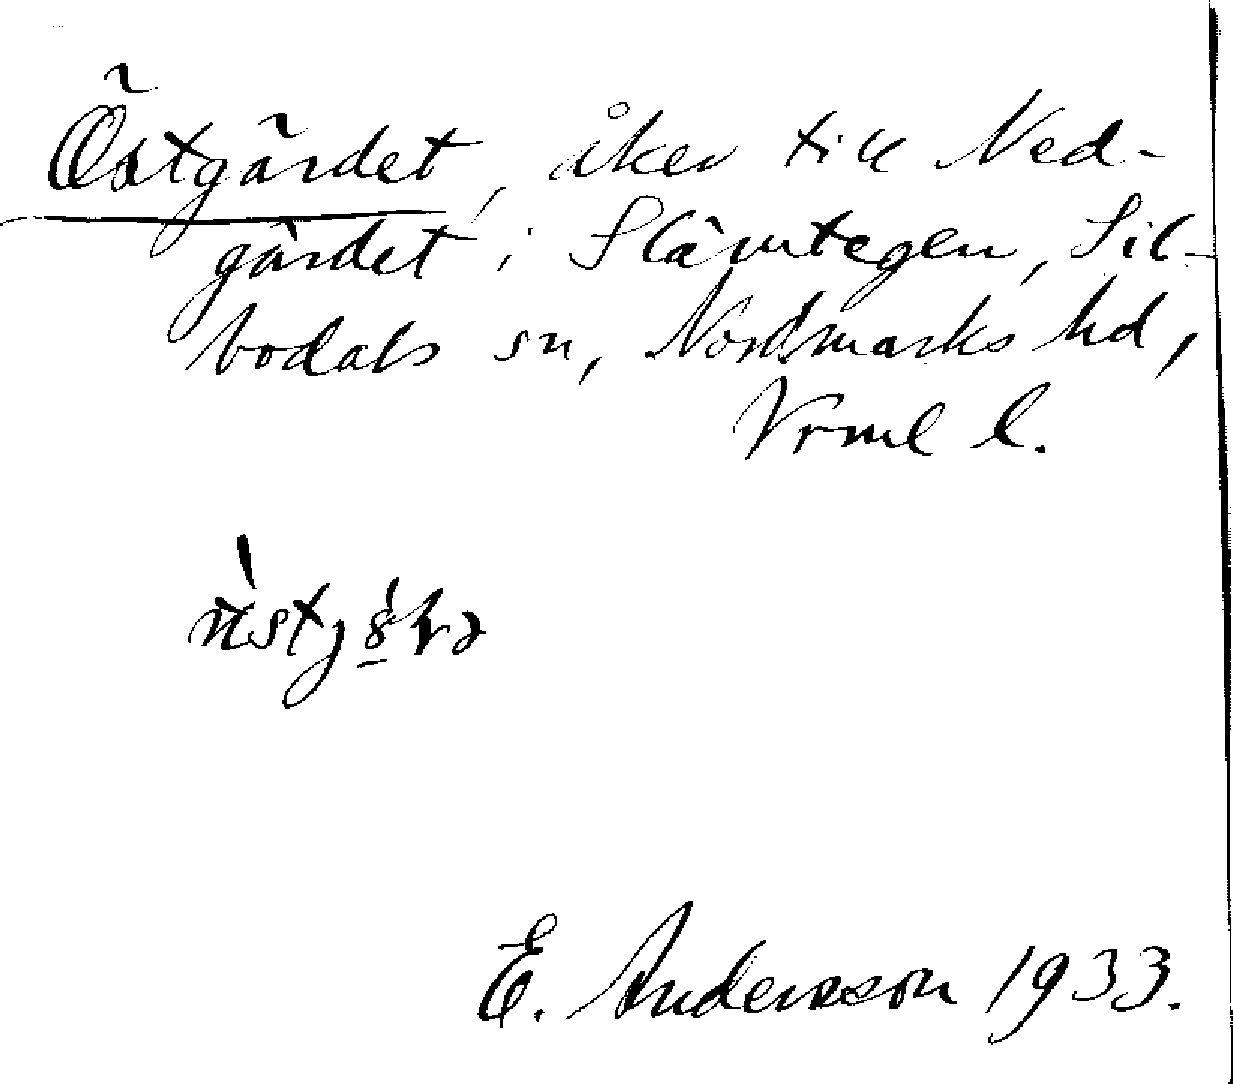 Östgärdet, åker till Ned-
gärdet i Slämtegen, Sil-
bodals sn, Nordmarks hd,
Vrml l.
E. Andersson 1933.